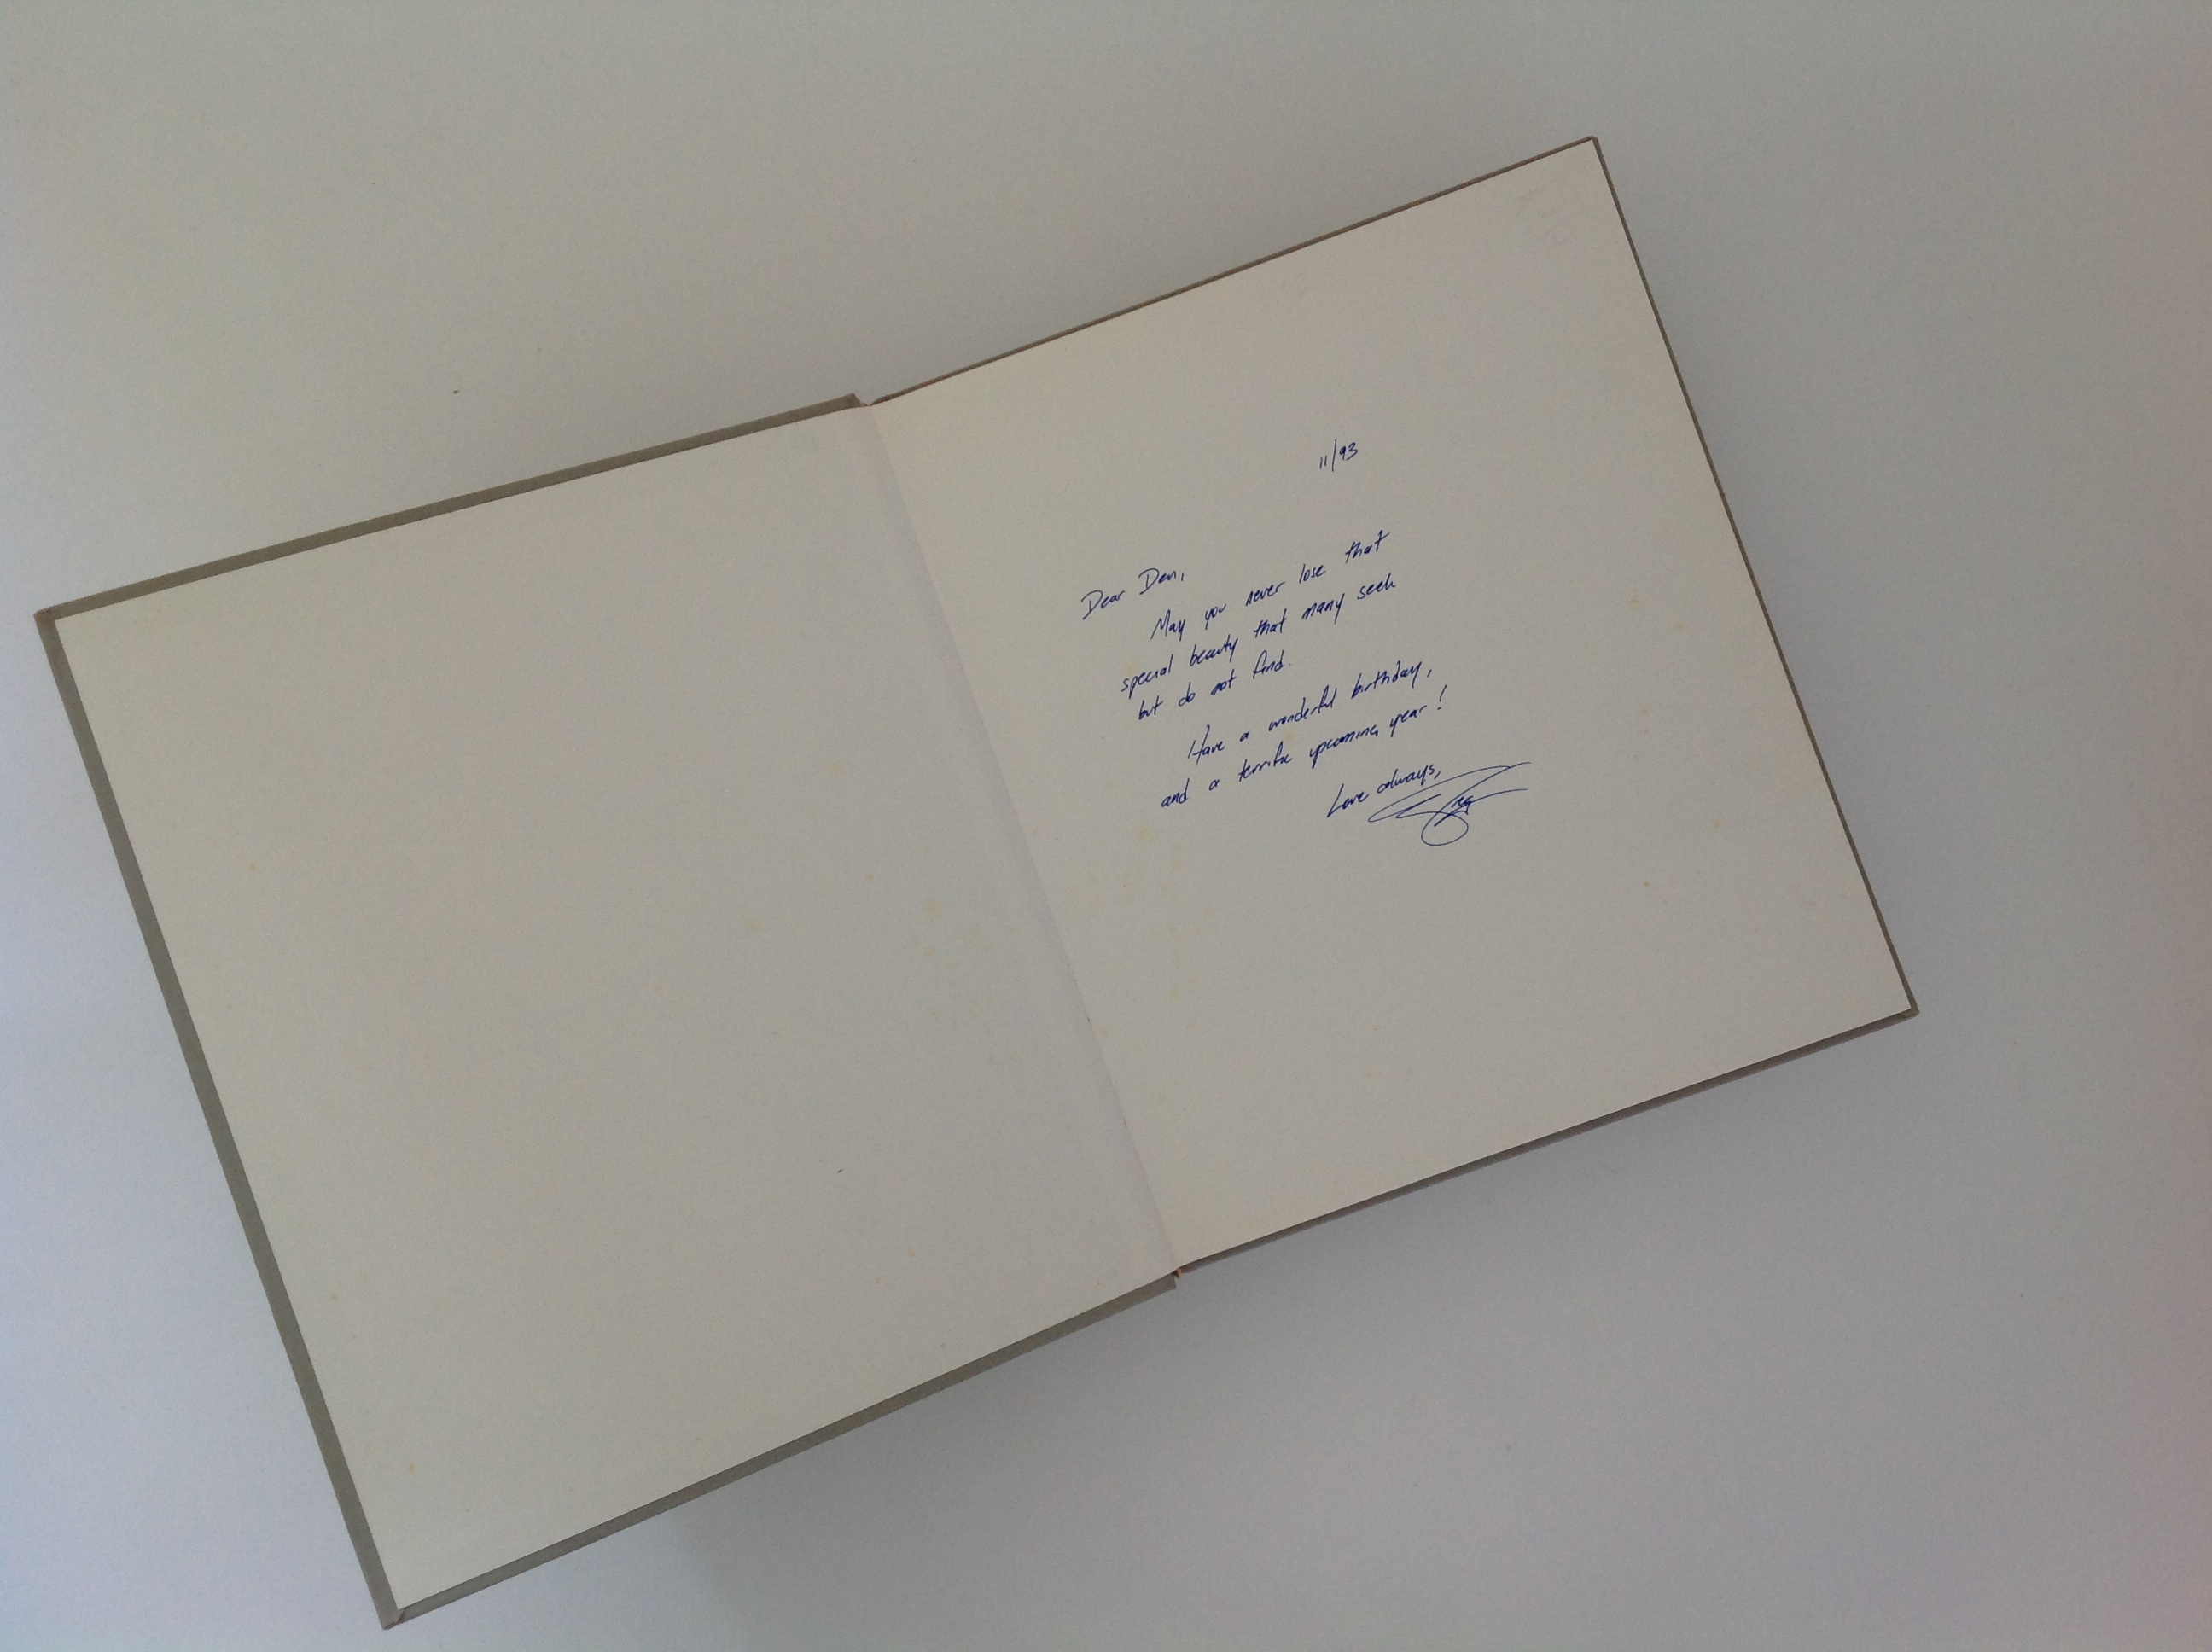 11/93
Dear Den,
May you never lose that
special beauty that many seek
but do not find.
Have a wonderful birthday,
and a terrific upcoming year!
Love always,
Greg